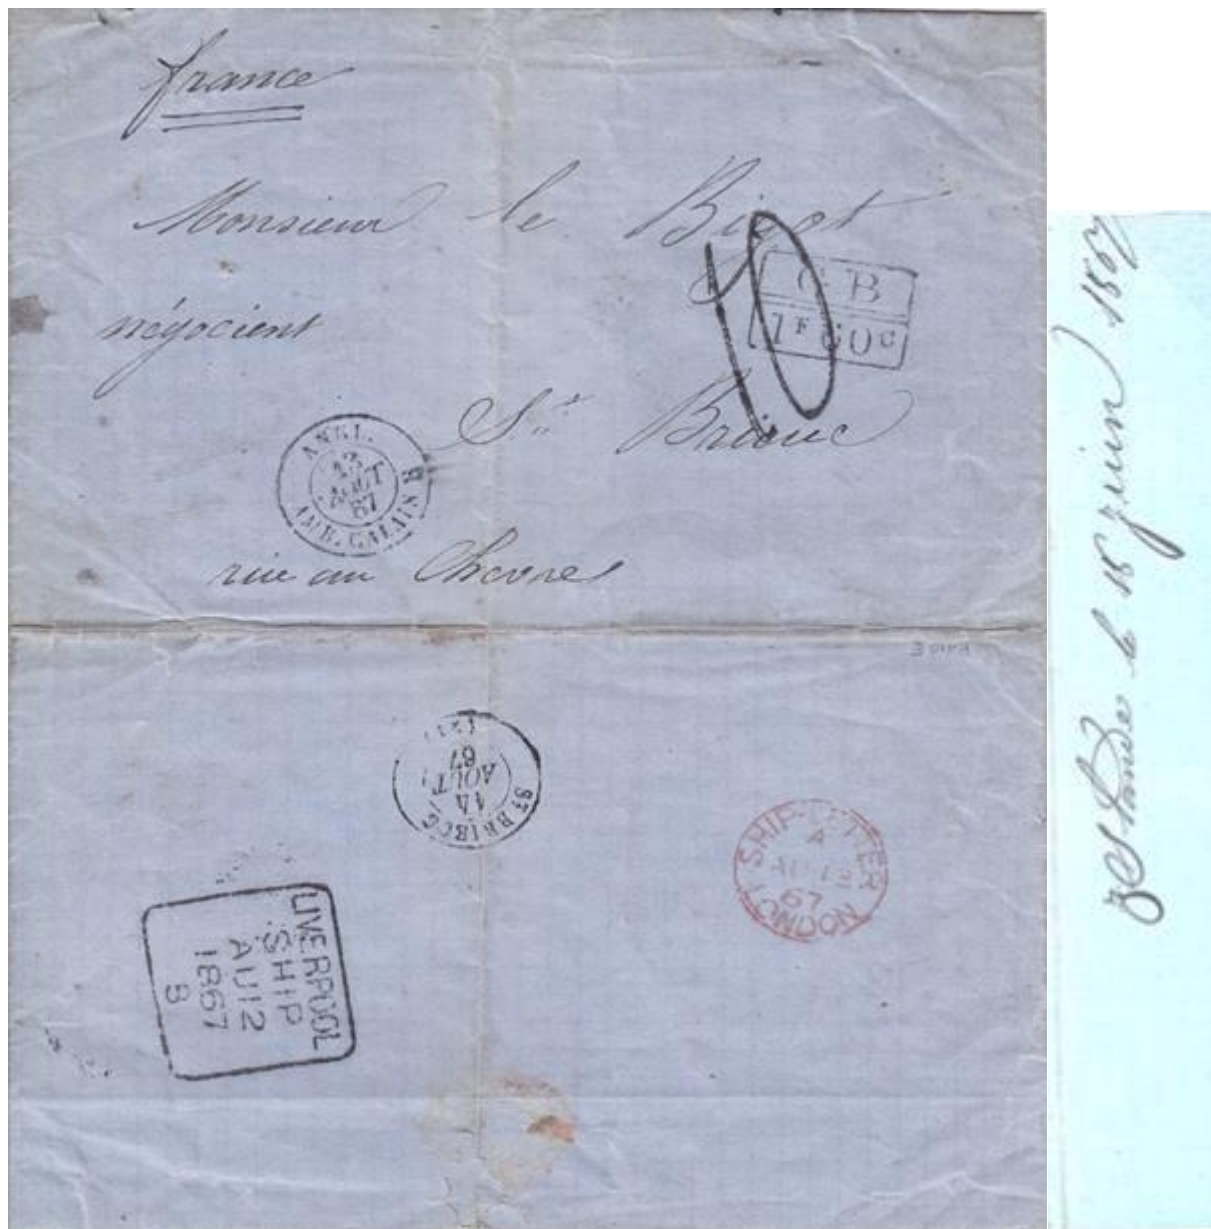 france
Monsieur le Bigot
négocient
G B
1F60c
10
St Brieuc
ANGL.
13
AOUT
67
AMB. CALAIS B
rue au Chevres
ST BRIEUC
14
AOUT
67
(21)
LONDON SHIP-LETTER
A
AU 13
67
LIVERPOOL
SHIP
AU 12
1867
B
le 15 juin 1867